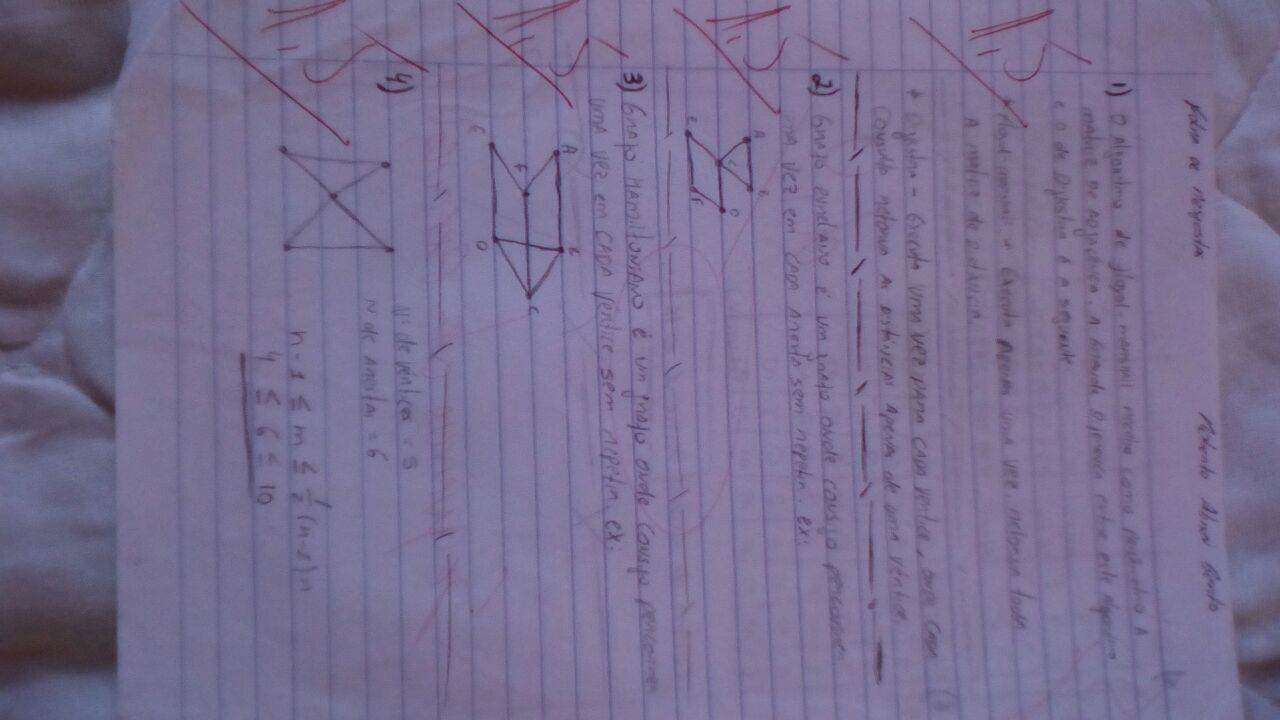 Folha de Respostas
1) O Algoritmo de Floyd-Marshall recebe como parâmetro A
matriz de Adjacência. A Grande Diferença entre este algoritmo
e o de Dijkstra é a seguinte:
1,5
* Floyd-marshall - Executa Apenas uma vez, retorna toda
A matriz de distância.
* Dijkstra - Executa uma vez para cada vértice, onde cada
consulta retorna as distâncias Apenas de uma vértice.
2) Grafo euleriano é um grafo onde consigo percorrer
uma vez em cada Aresta sem repetir. ex:
1,5
A B
C D
E F
3) Grafo Hamiltoniano é um grafo onde consigo percorrer
uma vez em cada vértice sem repetir. ex:
1,5
A B
F C
E D
4) Nº de vértices = 5
Nº de Arestas = 6
1,5
n-1 ≤ m ≤ 1/2 (n-1) n
4 ≤ 6 ≤ 10